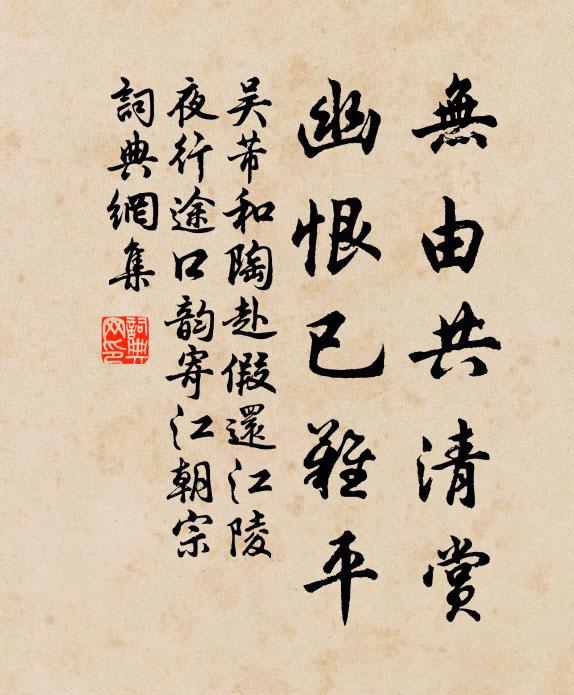 無由共清賞
幽恨已難平
吴芾和陶赴假還江陵
夜行途口韵寄江朝宗
詞典網集
詞典
网印